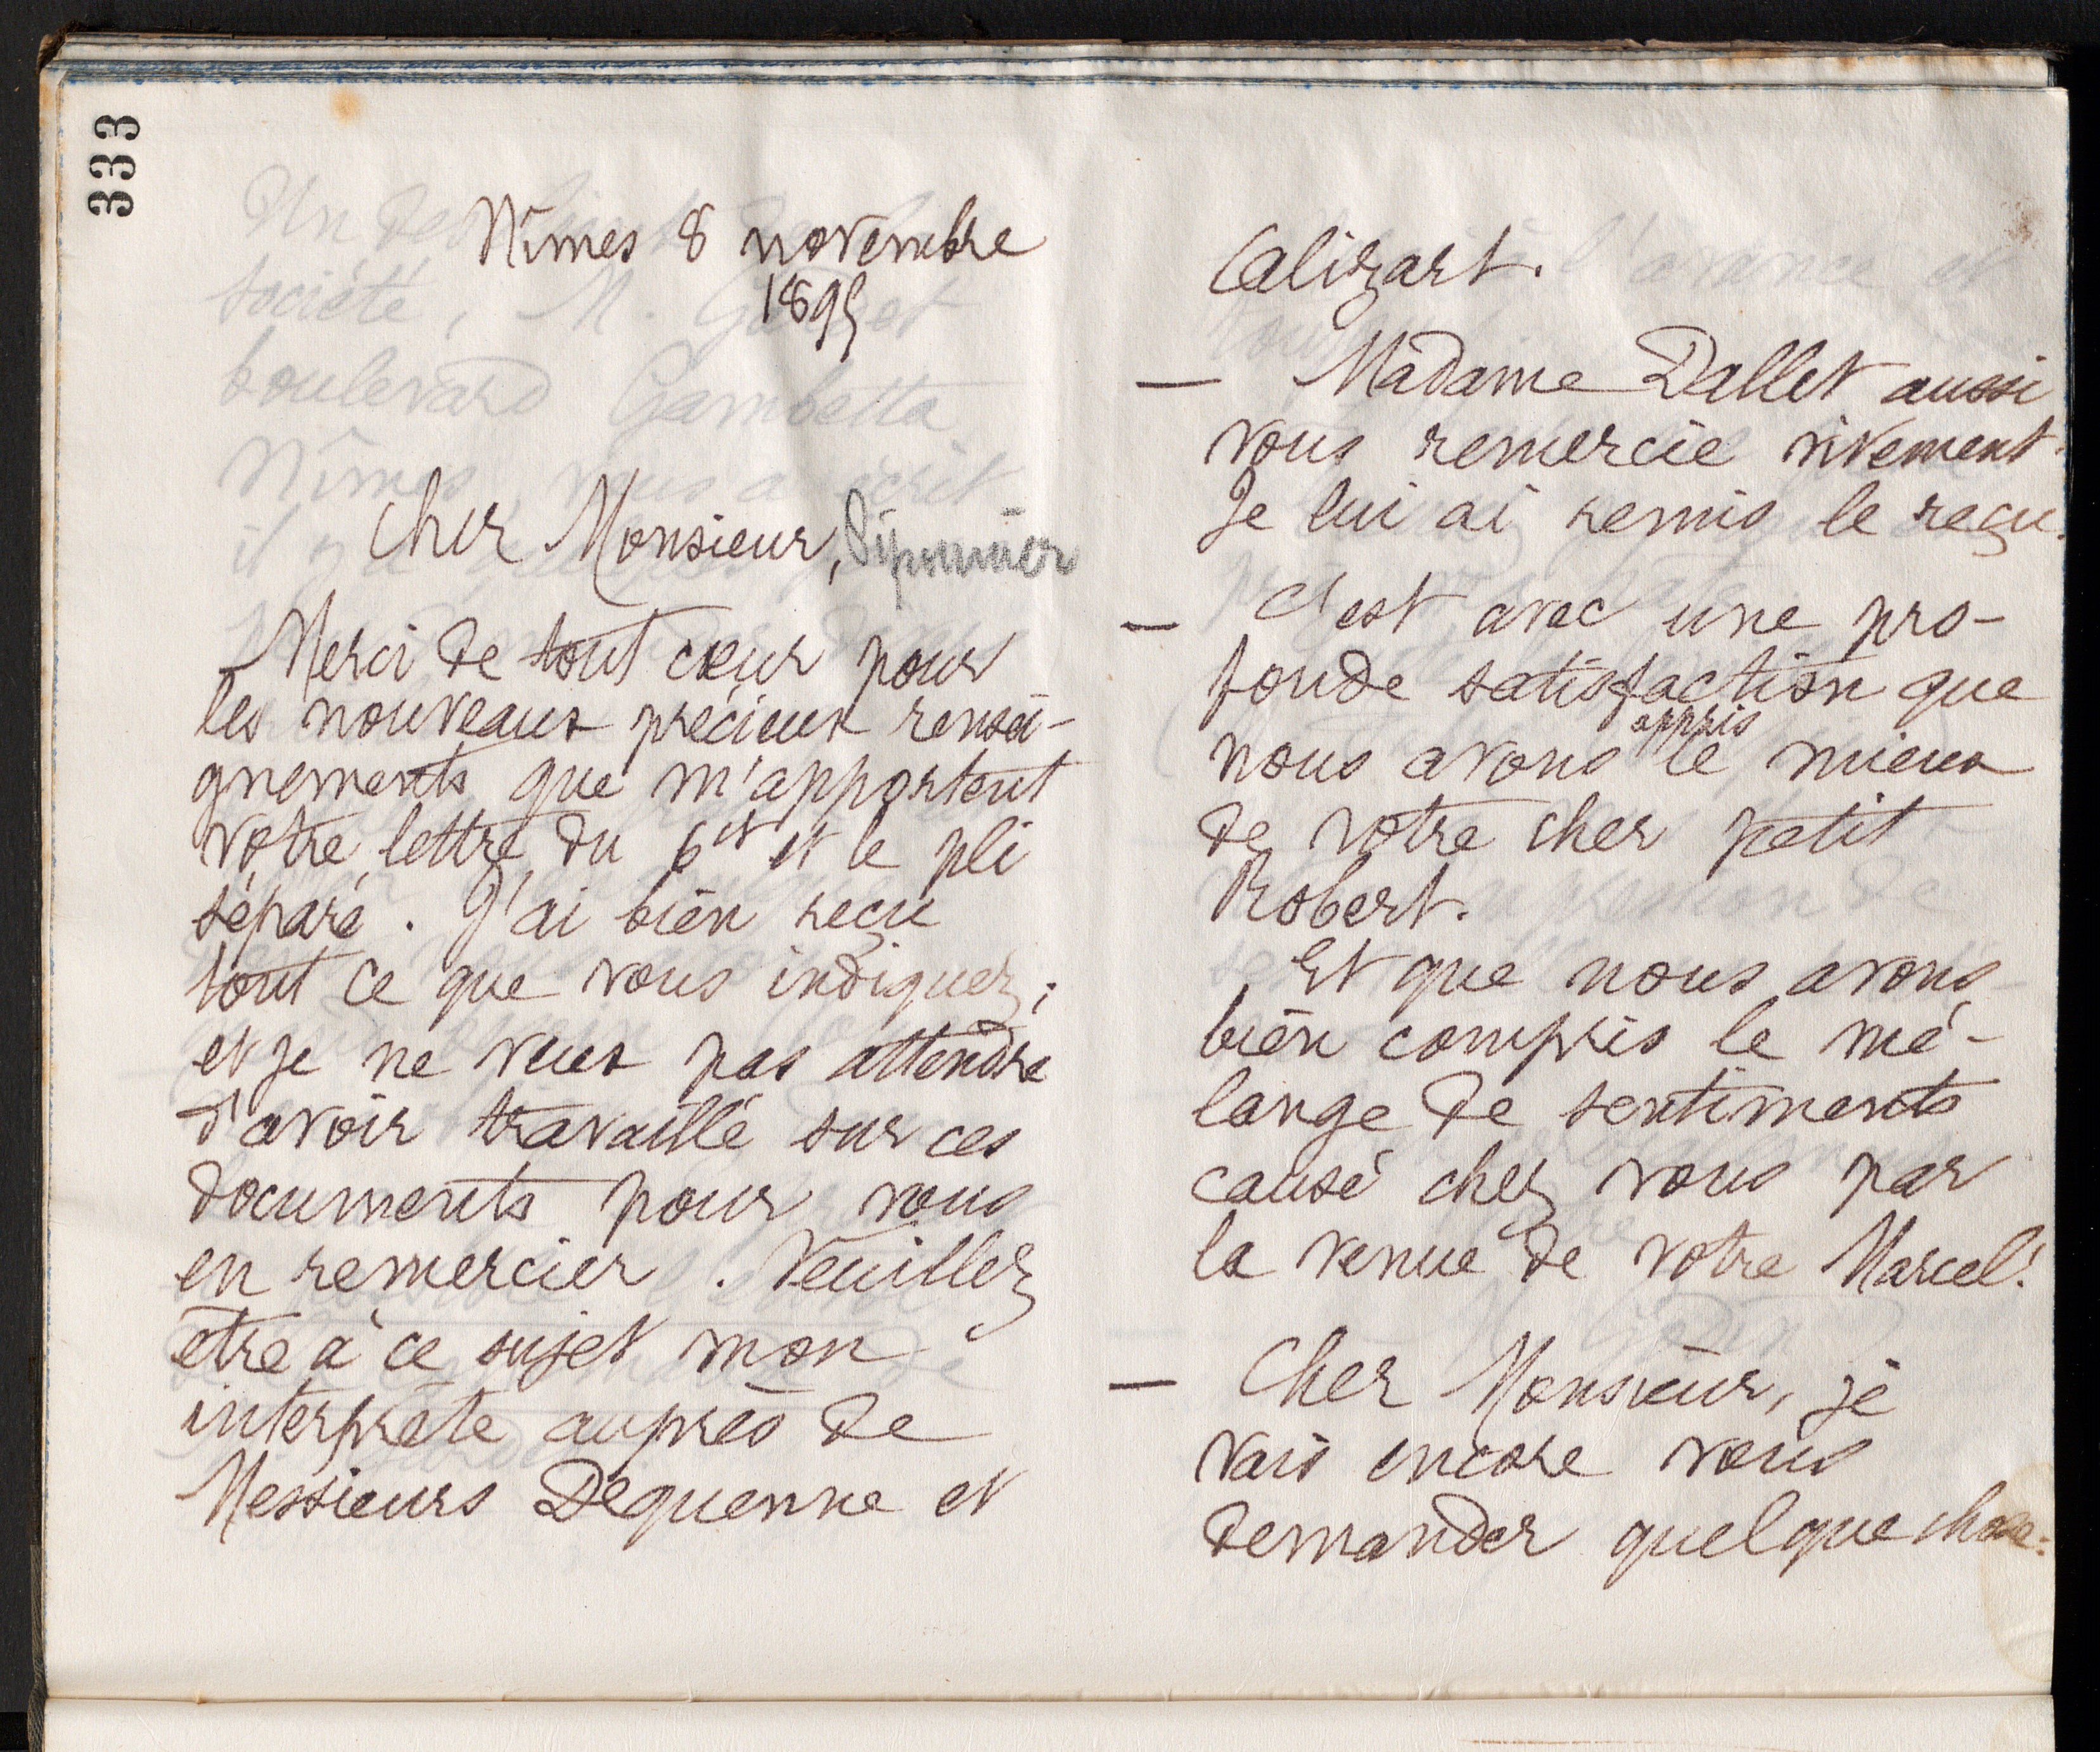 333
Nîmes 8 novembre
1895
Cher Monsieur, Sipounier
Merci de tout cœur pour
les nouveaux précieux rensei-
gnements que m'apportent
votre lettre du 6 et et le pli
séparé. J'ai bien reçu
tout ce que vous indiquez ;
et je ne veux pas attendre
d'avoir travaillé sur ces
documents pour vous
en remercier. Veuillez
être à ce sujet mon
interprète auprès de
Messieurs Dequenne et
Calizart.
— Madame Dallet aussi
vous remercie vivement.
Je lui ai remis le reçu.
— C'est avec une pro-
fonde satisfaction que
nous avons appris le mieux
de votre cher petit
Robert.
Et que nous avons
bien compris le mé-
lange de sentiments
causé chez vous par
la venue de votre Marcel !
— Cher Monsieur, je
vais encore vous
demander quelque chose :